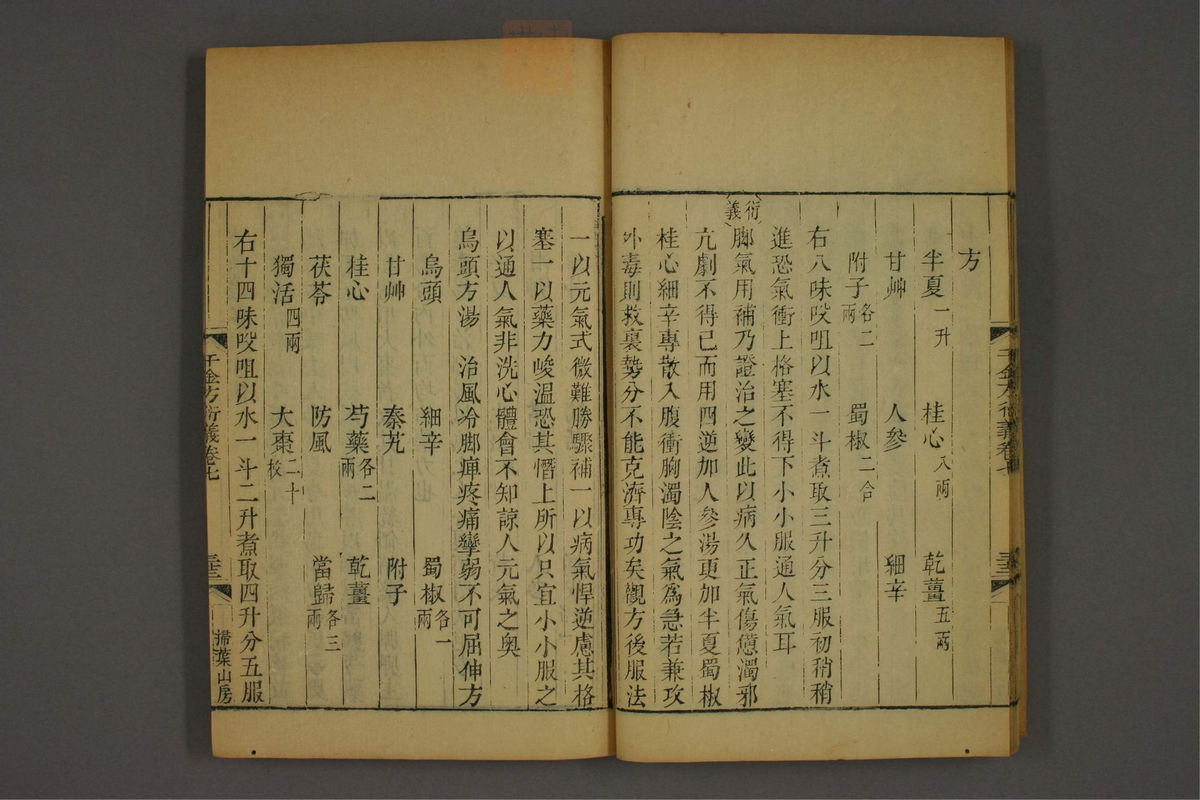 方
半夏一升 桂心八兩 乾薑五兩
甘艸 人參 細辛
附子各二兩 蜀椒二合
右八味㕮咀以水一斗煮取三升分三服初稍稍
進恐氣衝上格塞不得下小小服通人氣耳
衍義 脚氣用補乃證治之變此以病久正氣傷憊濁邪
亢劇不得已而用四逆加人參湯更加半夏蜀椒
桂心細辛專散入腹衝胸濁陰之氣爲急若兼攻
外毒則救裏勢分不能克濟專功矣觀方後服法
一以元氣式微難勝驟補一以病氣悍逆慮其格
塞一以藥力峻溫恐其僭上所以只宜小小服之
以通人氣非洗心體會不知諒人元氣之奧
烏頭方湯 治風冷脚痺疼痛攣弱不可屈伸方
烏頭 細辛 蜀椒各一兩
甘艸 秦艽 附子
桂心 芍藥各二兩 乾薑
茯苓 防風 當歸各三兩
獨活四兩 大棗二十枚
右十四味㕮咀以水一斗二升煮取四升分五服
千金方衍義卷七 三三 掃葉山房